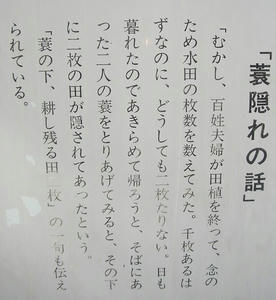 「蓑隠れの話」
「むかし、百姓夫婦が田植を終って、念の
ため水田の枚数を数えてみた。千枚あるは
ずなのに、どうしても二枚たりない。日も
暮れたのであきらめて帰ろうと、そばにあ
った二人の蓑をとりあげてみると、その下
に二枚の田が隠されてあったという。
「蓑の下、耕し残る田二枚」の一句も伝え
られている。